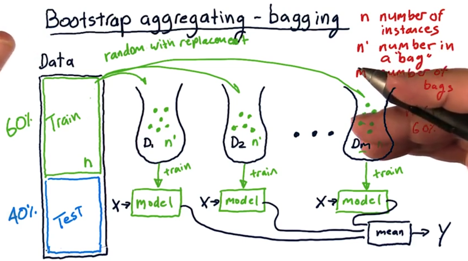 Bootstrap aggregating - bagging
n number of
instances
n' number in
a "bag"
m number of
bags
60%
random with replacement
Data
60%
Train
n
40%
TesT
D1 n'
D2 n'
Dm
train
train
train
X → model
X → model
X → model
mean
Y